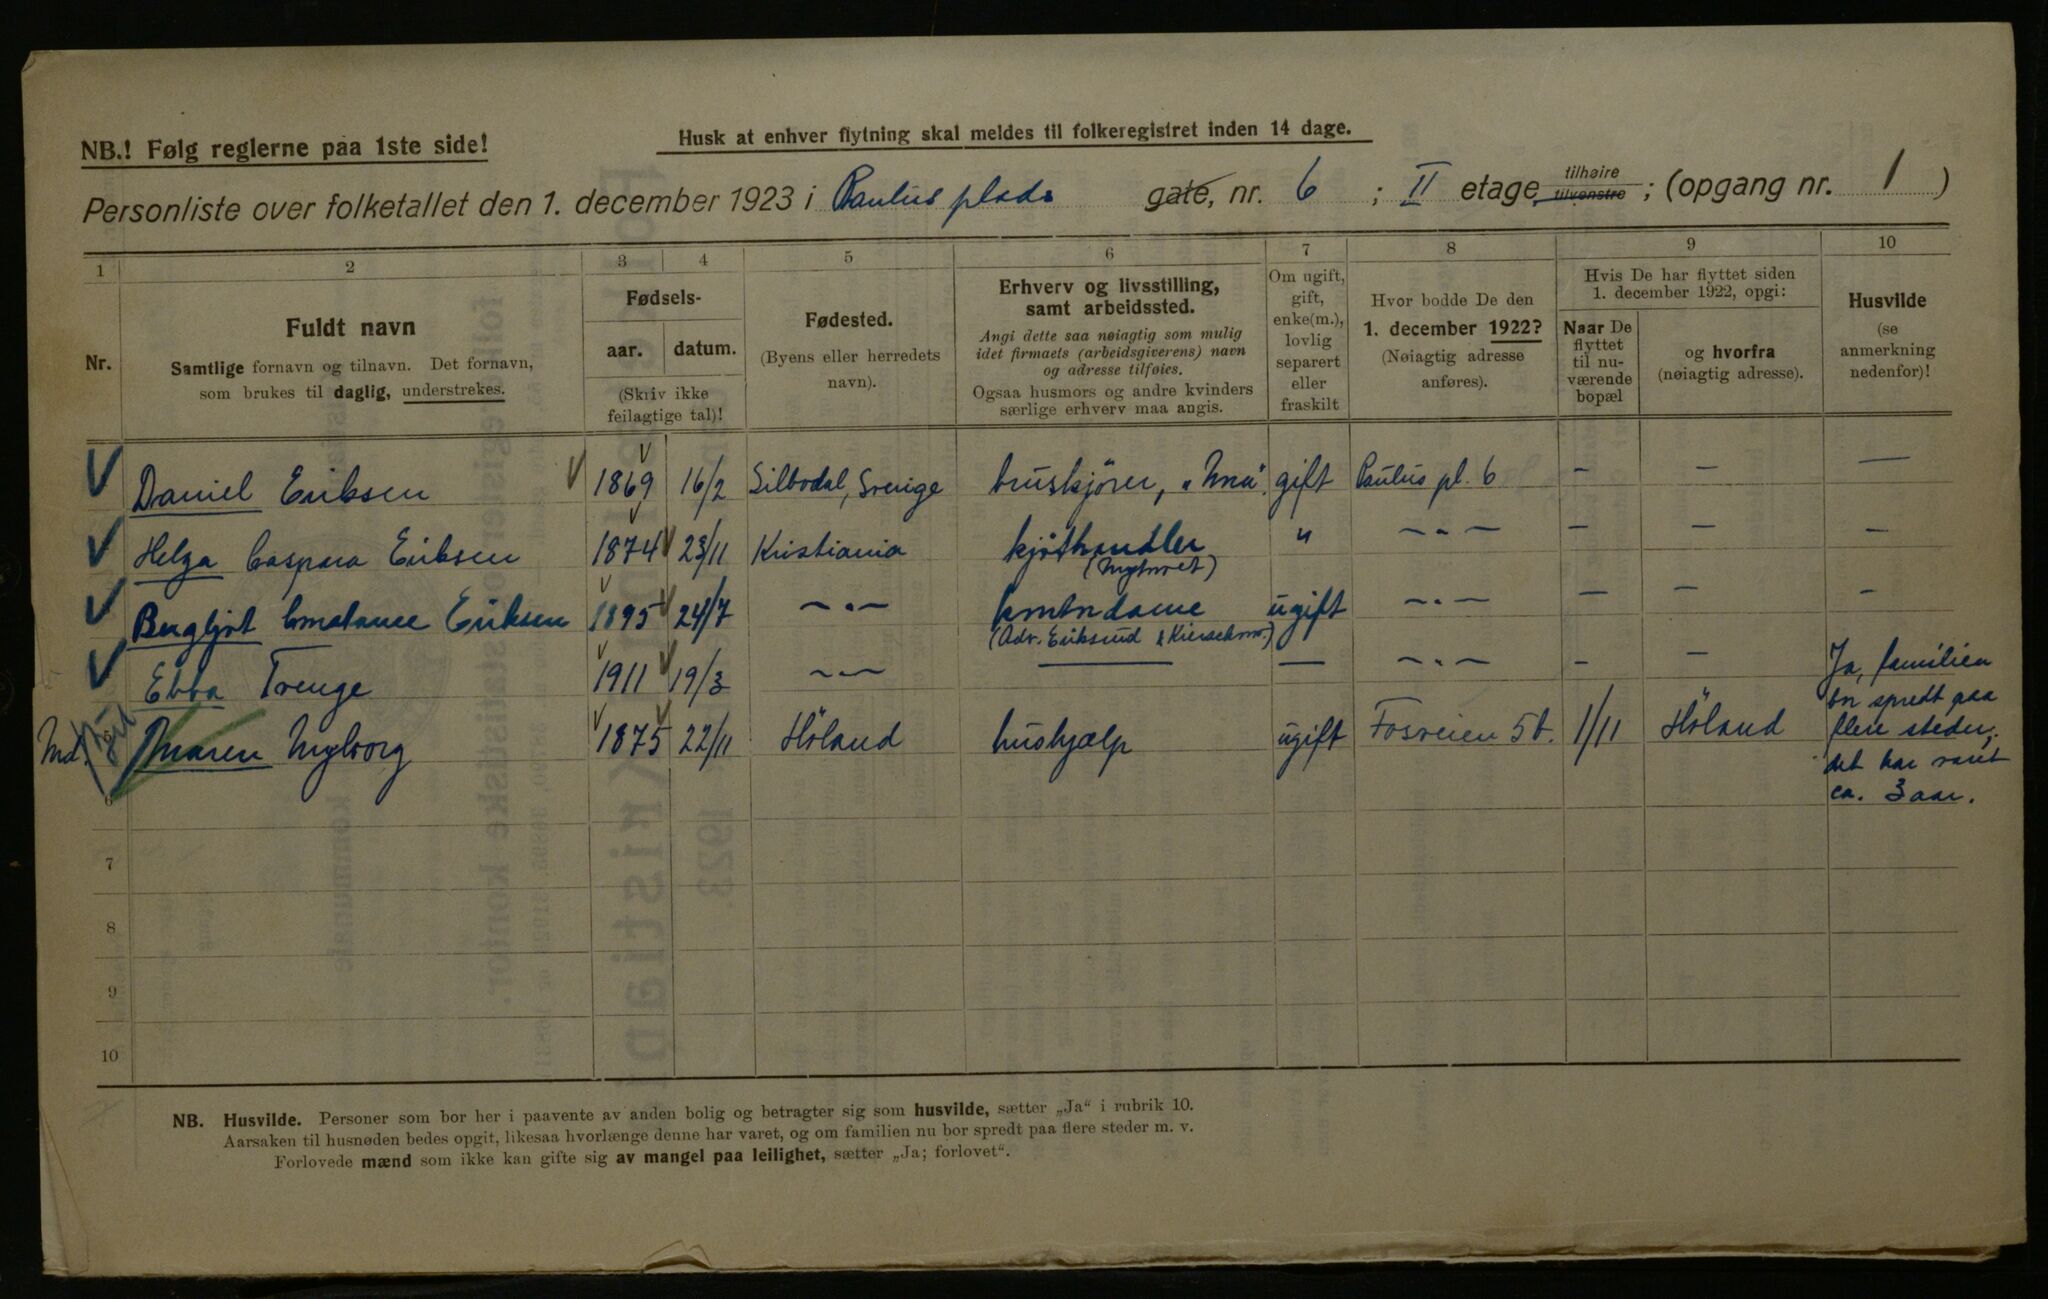 NB.! Følg reglerne paa 1ste side!
Husk at enhver flytning skal meldes til folkeregistret inden 14 dage.
Personliste over folketallet den 1. december 1923 i Paulus plads gate, nr. 6 ; II etage tilhøire tilvenstre ; (opgang nr. 1 )
1 2 3 4 5 6 7 8 9 10
Nr.
Fuldt navn
Samtlige fornavn og tilnavn. Det fornavn,
som brukes til daglig, understrekes.
Fødsels-
aar. datum.
(Skriv ikke
feilagtige tal)!
Fødested.
(Byens eller herredets
navn).
Erhverv og livsstilling,
samt arbeidssted.
Angi dette saa nøiagtig som mulig
idet firmaets (arbeidsgiverens) navn
og adresse tilføies.
Ogsaa husmors og andre kvinders
særlige erhverv maa angis.
Om ugift,
gift,
enke(m.),
lovlig
separert
eller
fraskilt
Hvor bodde De den
1. december 1922?
(Nøiagtig adresse
anføres).
Hvis De har flyttet siden
1. december 1922, opgi:
Naar De
flyttet
til nu-
værende
bopæl
og hvorfra
(nøiagtig adresse).
Husvilde
(se
anmerkning
nedenfor)!
Daniel Eriksen 1869 16/2 Silbodal, Sverige bruskjører, gift Paulus pl. 6 — — —
Helga Caspara Eriksen 1874 23/11 Kristiania kjøthandler " — " — — — —
(Nytorvet)
Bergljot Constance Eriksen 1895 24/7 — " — kontordame ugift — " — — — —
(Adv. Eriksrud &
Ebba Trenge 1911 19/3 — " — — — — " — — — Ja, familien
bor spredt paa
5 Maren Myhborg 1875 22/11 Høland hushjælp ugift Fosveien 5b. 1/11 Høland flere steder;
det har varet
6 ca. 3 aar.
7
8
9
10
NB. Husvilde. Personer som bor her i paavente av anden bolig og betragter sig som husvilde, sætter „Ja“ i rubrik 10.
Aarsaken til husnøden bedes opgit, likesaa hvorlænge denne har varet, og om familien nu bor spredt paa flere steder m. v.
Forlovede mænd som ikke kan gifte sig av mangel paa leilighet, sætter „Ja; forlovet“.